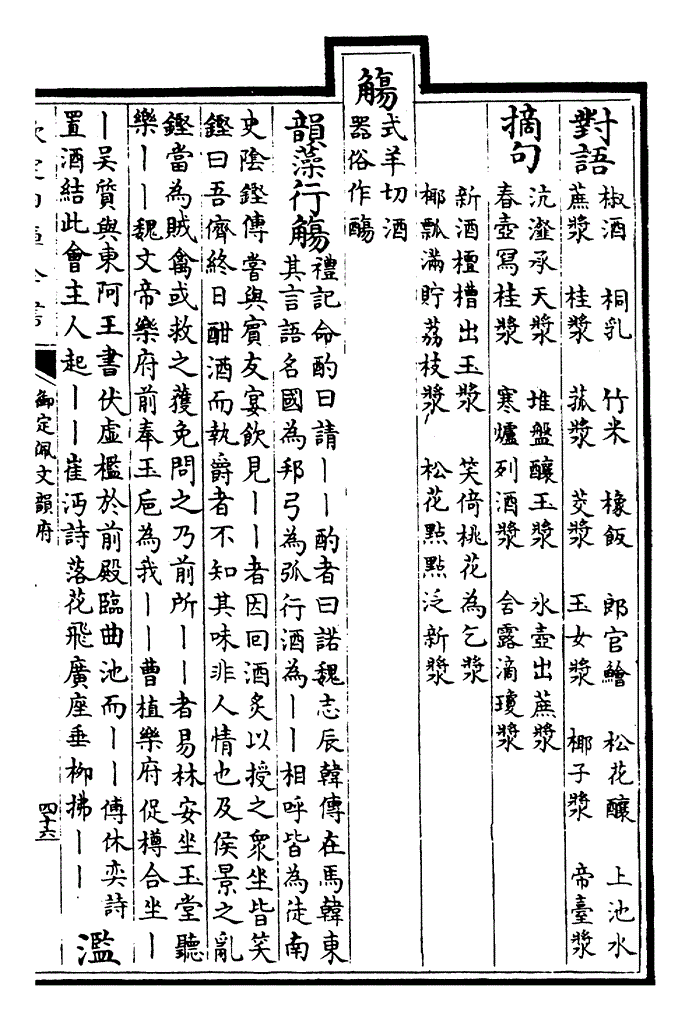 對語
椒酒　桐乳　竹米　橡飯　郎官鱠　松花釀　上池水
蔗漿　桂漿　菰漿　茭漿　玉女漿　椰子漿　帝臺漿
摘句
沆瀣承天漿　堆盤釀玉漿　氷壺出蔗漿
春壺冩桂漿　寒爐列酒漿　含露滴瓊漿
新酒檀槽出玉漿　笑倚桃花為乞漿
椰瓢滿貯荔枝漿　松花點點泛新漿
觴
式羊切酒
器俗作
韻藻行觴
禮記命酌曰請丨丨酌者曰諾魏志辰韓傳在馬韓東
其言語名國為邦弓為弧行酒為丨丨相呼皆為徒南
史陰鏗傳嘗與賓友宴飲見丨丨者因回酒炙以授之衆坐皆笑
鏗曰吾儕終日酣酒而執爵者不知其味非人情也及侯景之亂
鏗當為賊禽或救之獲免問之乃前所丨丨者易林安坐玉堂聽
樂丨丨魏文帝樂府前奉玉巵為我丨丨曹植樂府促樽合坐丨
丨吳質與東阿王書伏虛檻於前殿臨曲池而丨丨傅休奕詩
置酒結此會主人起丨丨崔沔詩落花飛廣座垂柳拂丨丨
濫
欽定四庫全書
御定佩文韻府
四十六